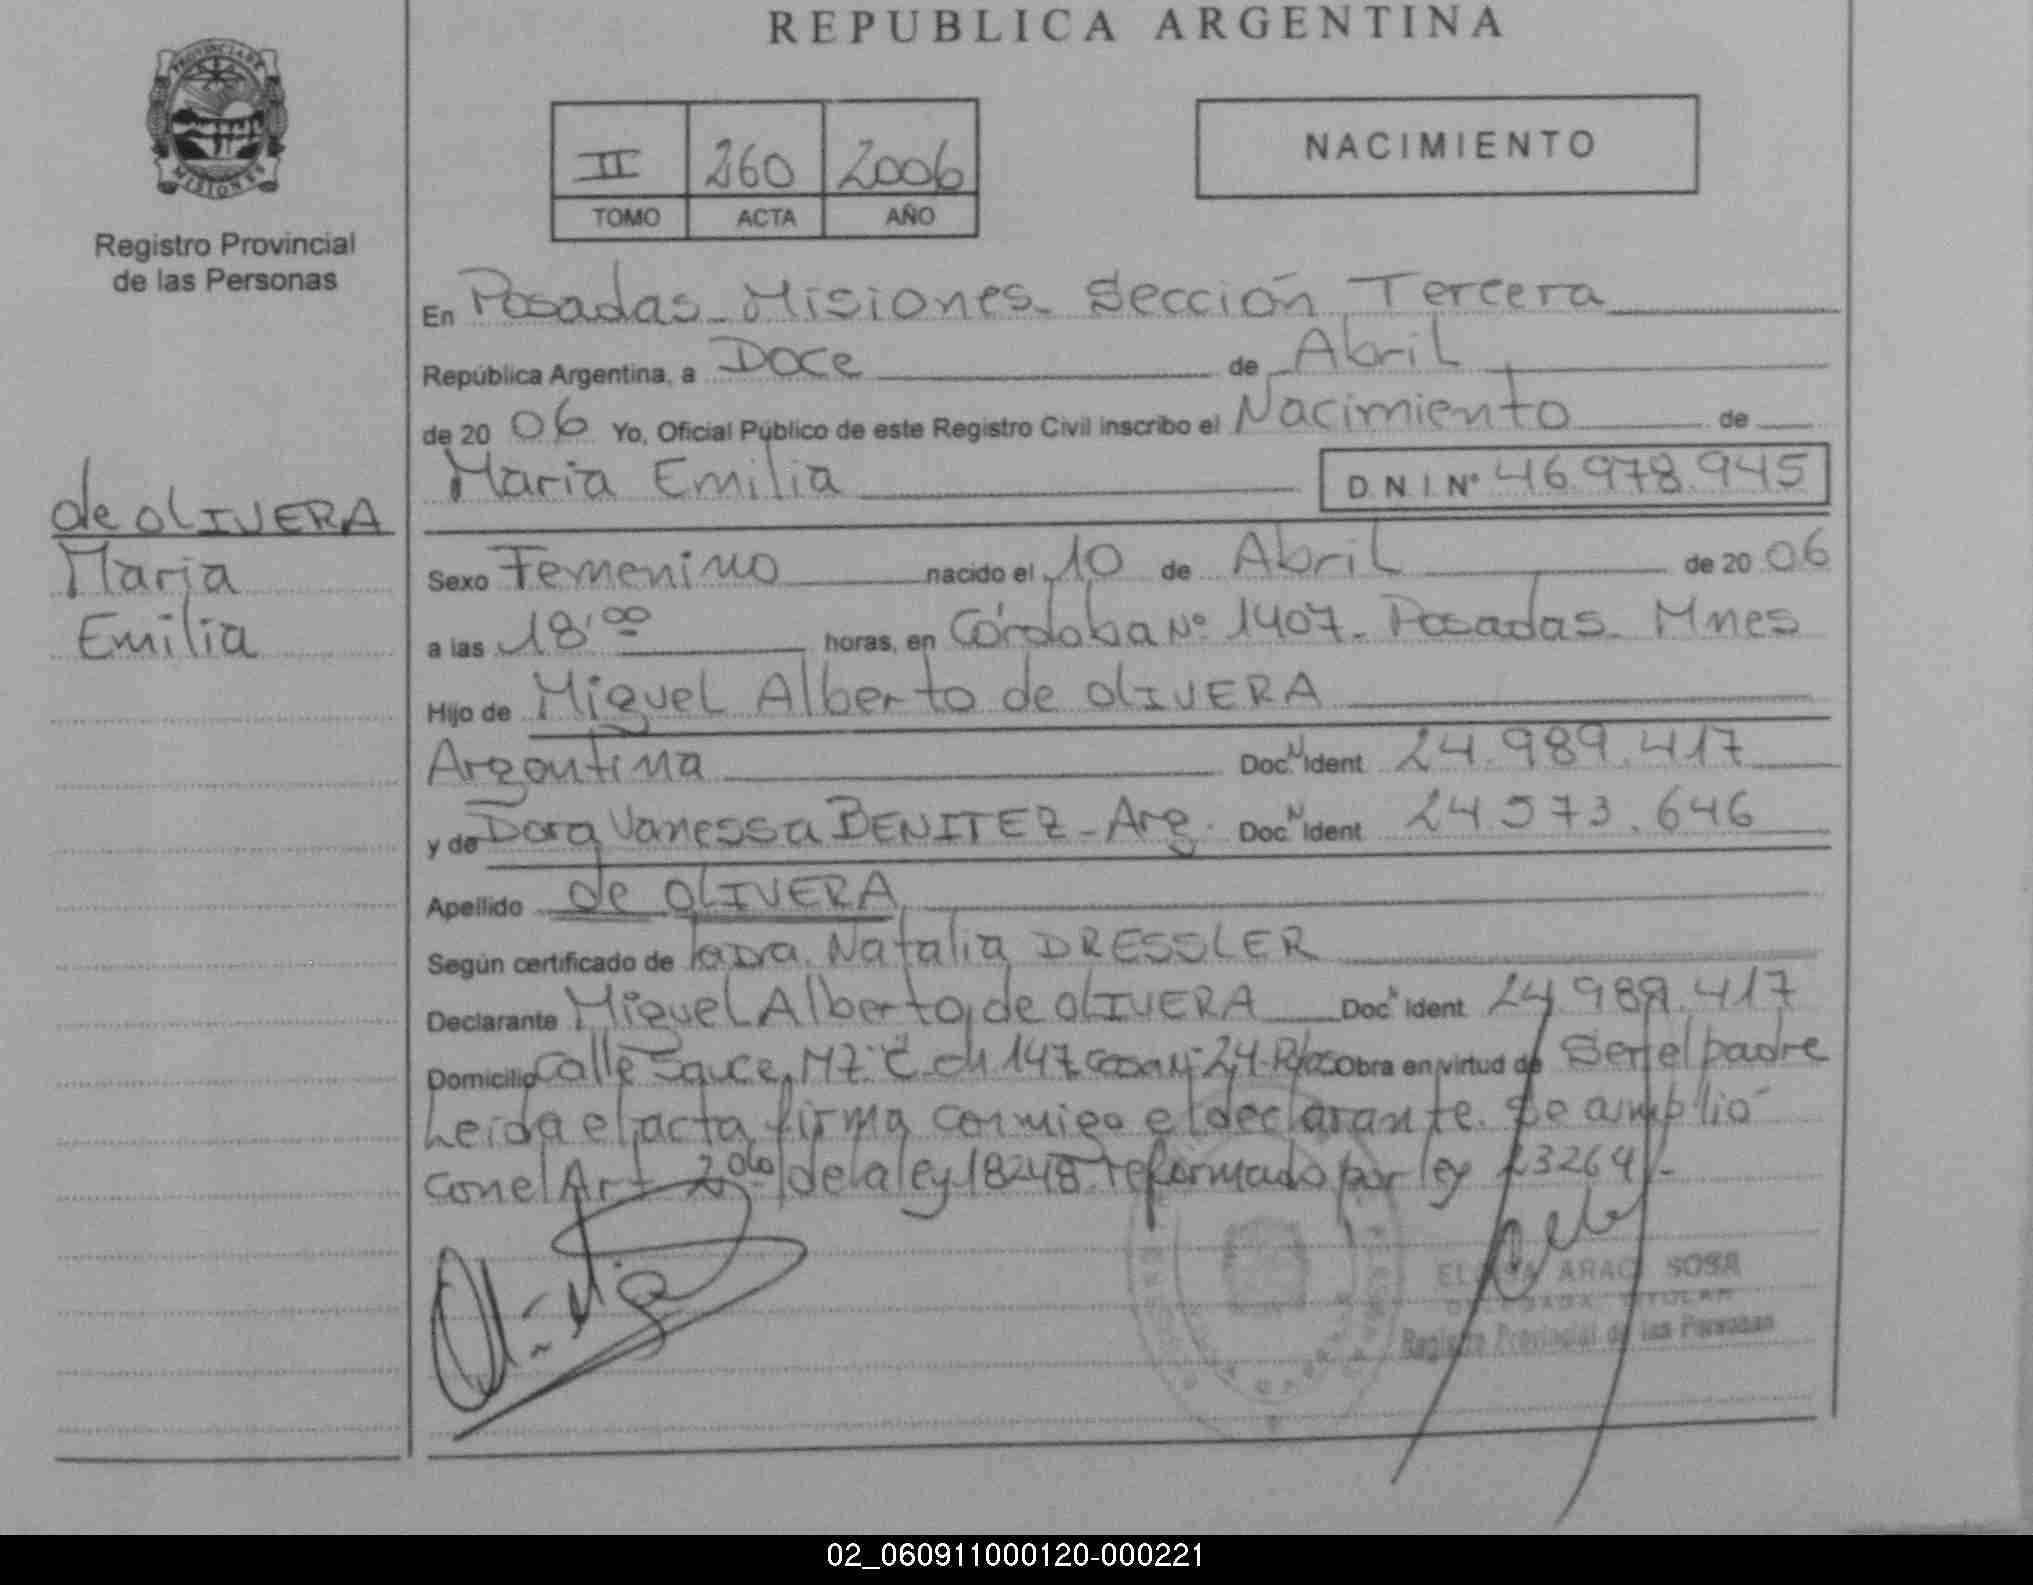 REPUBLICA ARGENTINA
PROVINCIA DE
MISIONES
Registro Provincial
de las Personas
II 260 2006
TOMO ACTA AÑO
NACIMIENTO
En Posadas - Misiones - Sección Tercera
República Argentina, a Doce de Abril
de 20 06 Yo, Oficial Público de este Registro Civil inscribo el Nacimiento de
Maria Emilia D N I Nº 46.978.945
de OLIVERA
Maria
Emilia
Sexo Femenino nacido el 10 de Abril de 20 06
a las 18,00 horas, en Córdoba Nº 1407 - Posadas - Mnes
Hijo de Miguel Alberto de OLIVERA
Argentina Doc. N Ident 24.989.417
y de Dora Vanessa BENITEZ - Arg. Doc. N Ident 24.573.646
Apellido de OLIVERA
Según certificado de la Dra. Natalia DRESSLER
Declarante Miguel Alberto de OLIVERA Doc. Ident 24.989.417
Domicilio Calle Sauce, MZ "C" ch 147 casa Nº 24 - Obra en virtud de Ser el padre
Leida el acta firma conmigo el declarante. Se amplió
con el Art 2do de la ley 18248 reformado por ley 23264 -
ARACI SOSA
TITULAR
Registro Provincial de las Personas
02_060911000120-000221